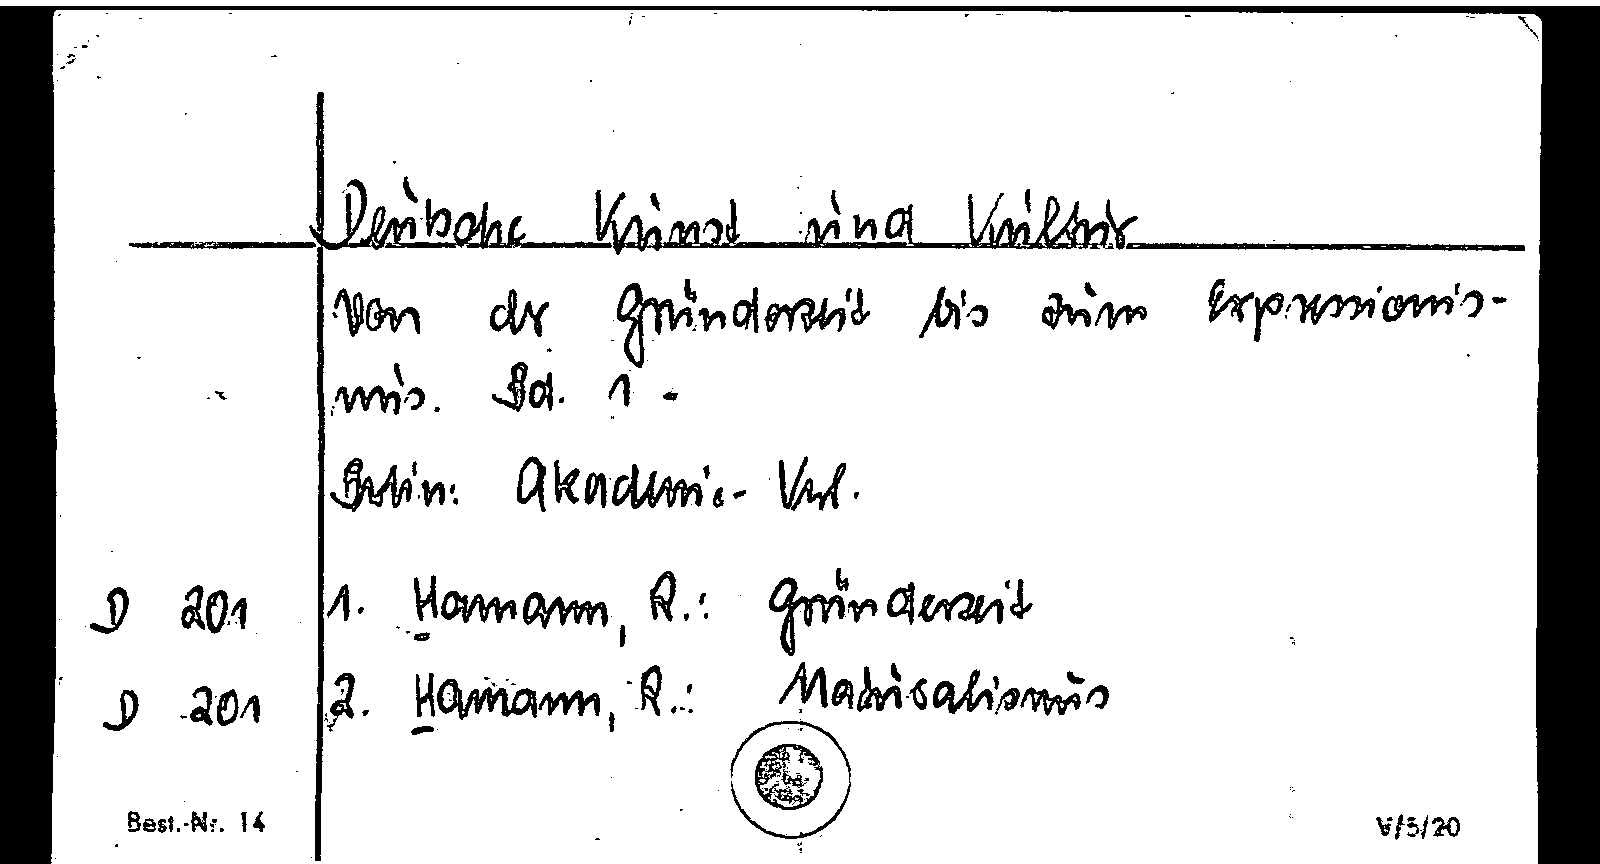 Deutsche Kunst und Kultur
Von der Gründerzeit bis zum Expressionis-
mus. Bd. 1 -
Berlin: Akademie-Verl.
D 201 1. Hamann, R.: Gründerzeit
D 201 2. Hamann, R.: Naturalismus
Best.-Nr. 14 V/5/20